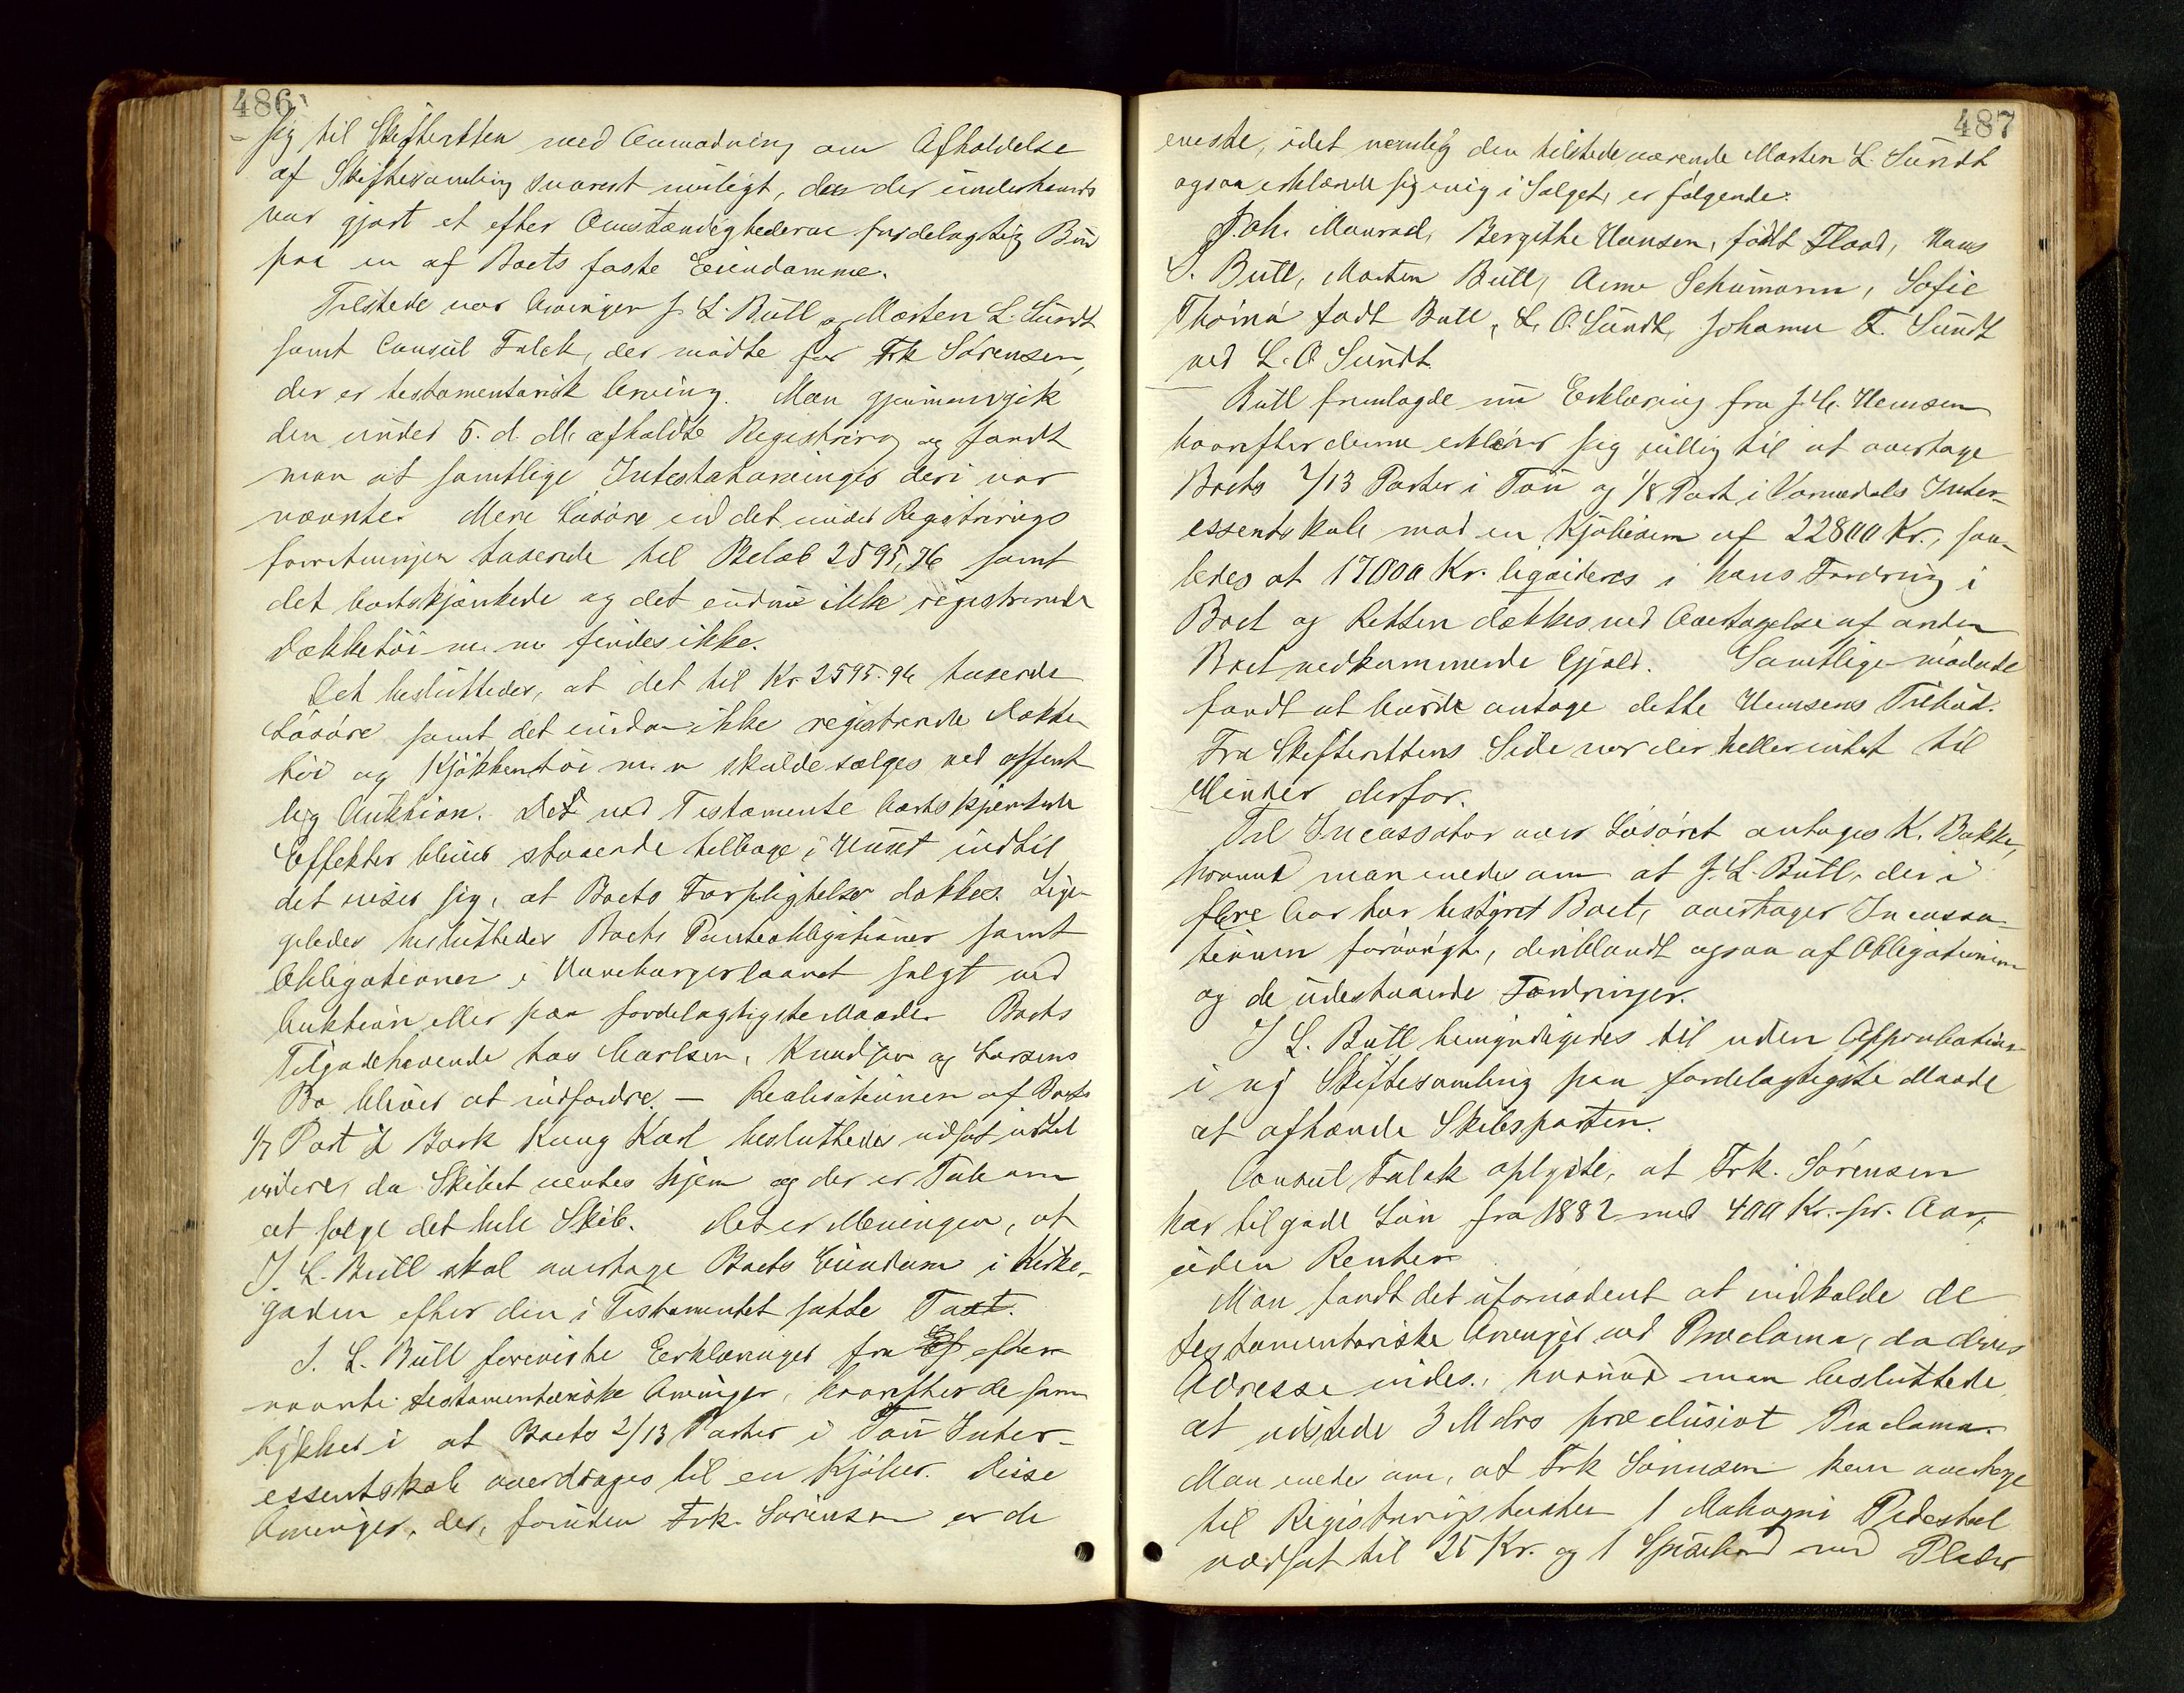 486
sig til Skifteretten med Anmodning om Afholdelse
af Skiftesamling snarest muligt, da der underhaands
var gjort et efter Omstændighederne fordelagtig Bud
paa en af Boets faste Eiendomme.
Tilstede var Arvingen J. L. Bull og Morten L. Sundt
samt Consul Falck, der mødte for Frk Sørensen,
der er testamentarisk Arving. Man gjennemgik
den under 5. d. M. afholdte Registrering og fandt
man at samtlige Intestatarvinger deri var
nævnte. Mere Løsøre end det under Registrerings
forretningen taxerede til Beløb 2595,96 samt
det bortskjænkede og det endnu ikke registrerede
Dækketøi m. m. findes ikke.
Det besluttedes, at det til Kr. 2595.96 taxerede
Løsøre samt det endnu ikke registrerede Dække
tøi og Kjøkkentøi m. v. skulde sælges ved offent
lig Auktion. Det ved Testamente bortskjænkede
Effekter bliver staaende tilbage i Huset indtil
det viser sig, at Boets Forpligtelser dækkes. Lige
ledes besluttedes Boets Panteobligationer samt
Obligationer i laanet solgt ved
Auktion eller paa fordelagtigste Maade. Boets
Tilgodehavende hos Carlsen, Knudsen og Larsens
Bo bliver at indfordre. — Realisationen af Boets
1/7 Part i Bark Kung Karl besluttedes udsat indtil
videre, da Skibet ventes hjem og der er Tale om
at sælge det hele Skib. Det er Meningen, at
J. L. Bull skal overtage Boets Eiendom i Kirke-
gaden efter den i Testamentet satte Taxt.
J. L. Bull foreviste Erklæringer fra efter
nævnte testamentariske Arvinger, hvorefter de sam
tykker i at Boets 2/13 Parter i Tou Inter-
essentskab overdrages til en Kjøber. Disse
Arvinger, der, foruden Frk. Sørensen er de
487
eneste, idet nemlig den tilstedeværende Morten L. Sundt
ogsaa erklærede sig enig i Salget, er følgende:
Joh. Monrad, Bergithe Hansen, født Flood, Hans
L. Bull, Morten Bull, Anna Schumann, Sofie
født Bull, L. O. Sundt, Johanne F. Sundt
ved L. O. Sundt.
Bull fremlagde nu Erklæring fra J. C. Hemsen
hvorefter denne erklærer sig villig til at overtage
Boets 2/13 Parter i Tou og 1/8 Part i Inter-
essentskab mod en Kjøbesum af 22800 Kr., saa-
ledes at 17000 Kr. liqvideres i hans Fordring i
Boet og Resten dækkes ved Overtagelse af anden
Boet vedkommende Gjæld. Samtlige mødende
fandt at burde antage dette Hemsens Tilbud.
Fra Skifterettens Side var der heller intet til
Hinder derfor.
Til Incassator over Løsøret antages K. Bakke,
hvorved man enedes om at J. L. Bull, der i
flere Aar har bestyret Boet, overtager Incassa-
tionen forøvrigt, deriblandt ogsaa af Obligationerne
og de udestaaende Fordringer.
J. L. Bull bemyndigedes til uden Approbation
i ny Skiftesamling paa fordelagtigste Maade
at afhænde Skibsparten.
Consul Falck oplyste, at Frk. Sørensen
har tilgode Løn fra 1882 med 400 Kr. pr. Aar,
uden Renter.
Man fandt det ufornødent at indkalde de
testamentariske Arvinger ved Proclama, da deres
Adresse vides, hvorved man besluttede
at udstede 3 Mdrs præclusivt Proclama.
Man enedes om, at Frk Sørensen kan overtage
til Registreringstaxten 1 Mahogni Pidestal
værdsat til 25 Kr. og 1 Spisebord med Plader